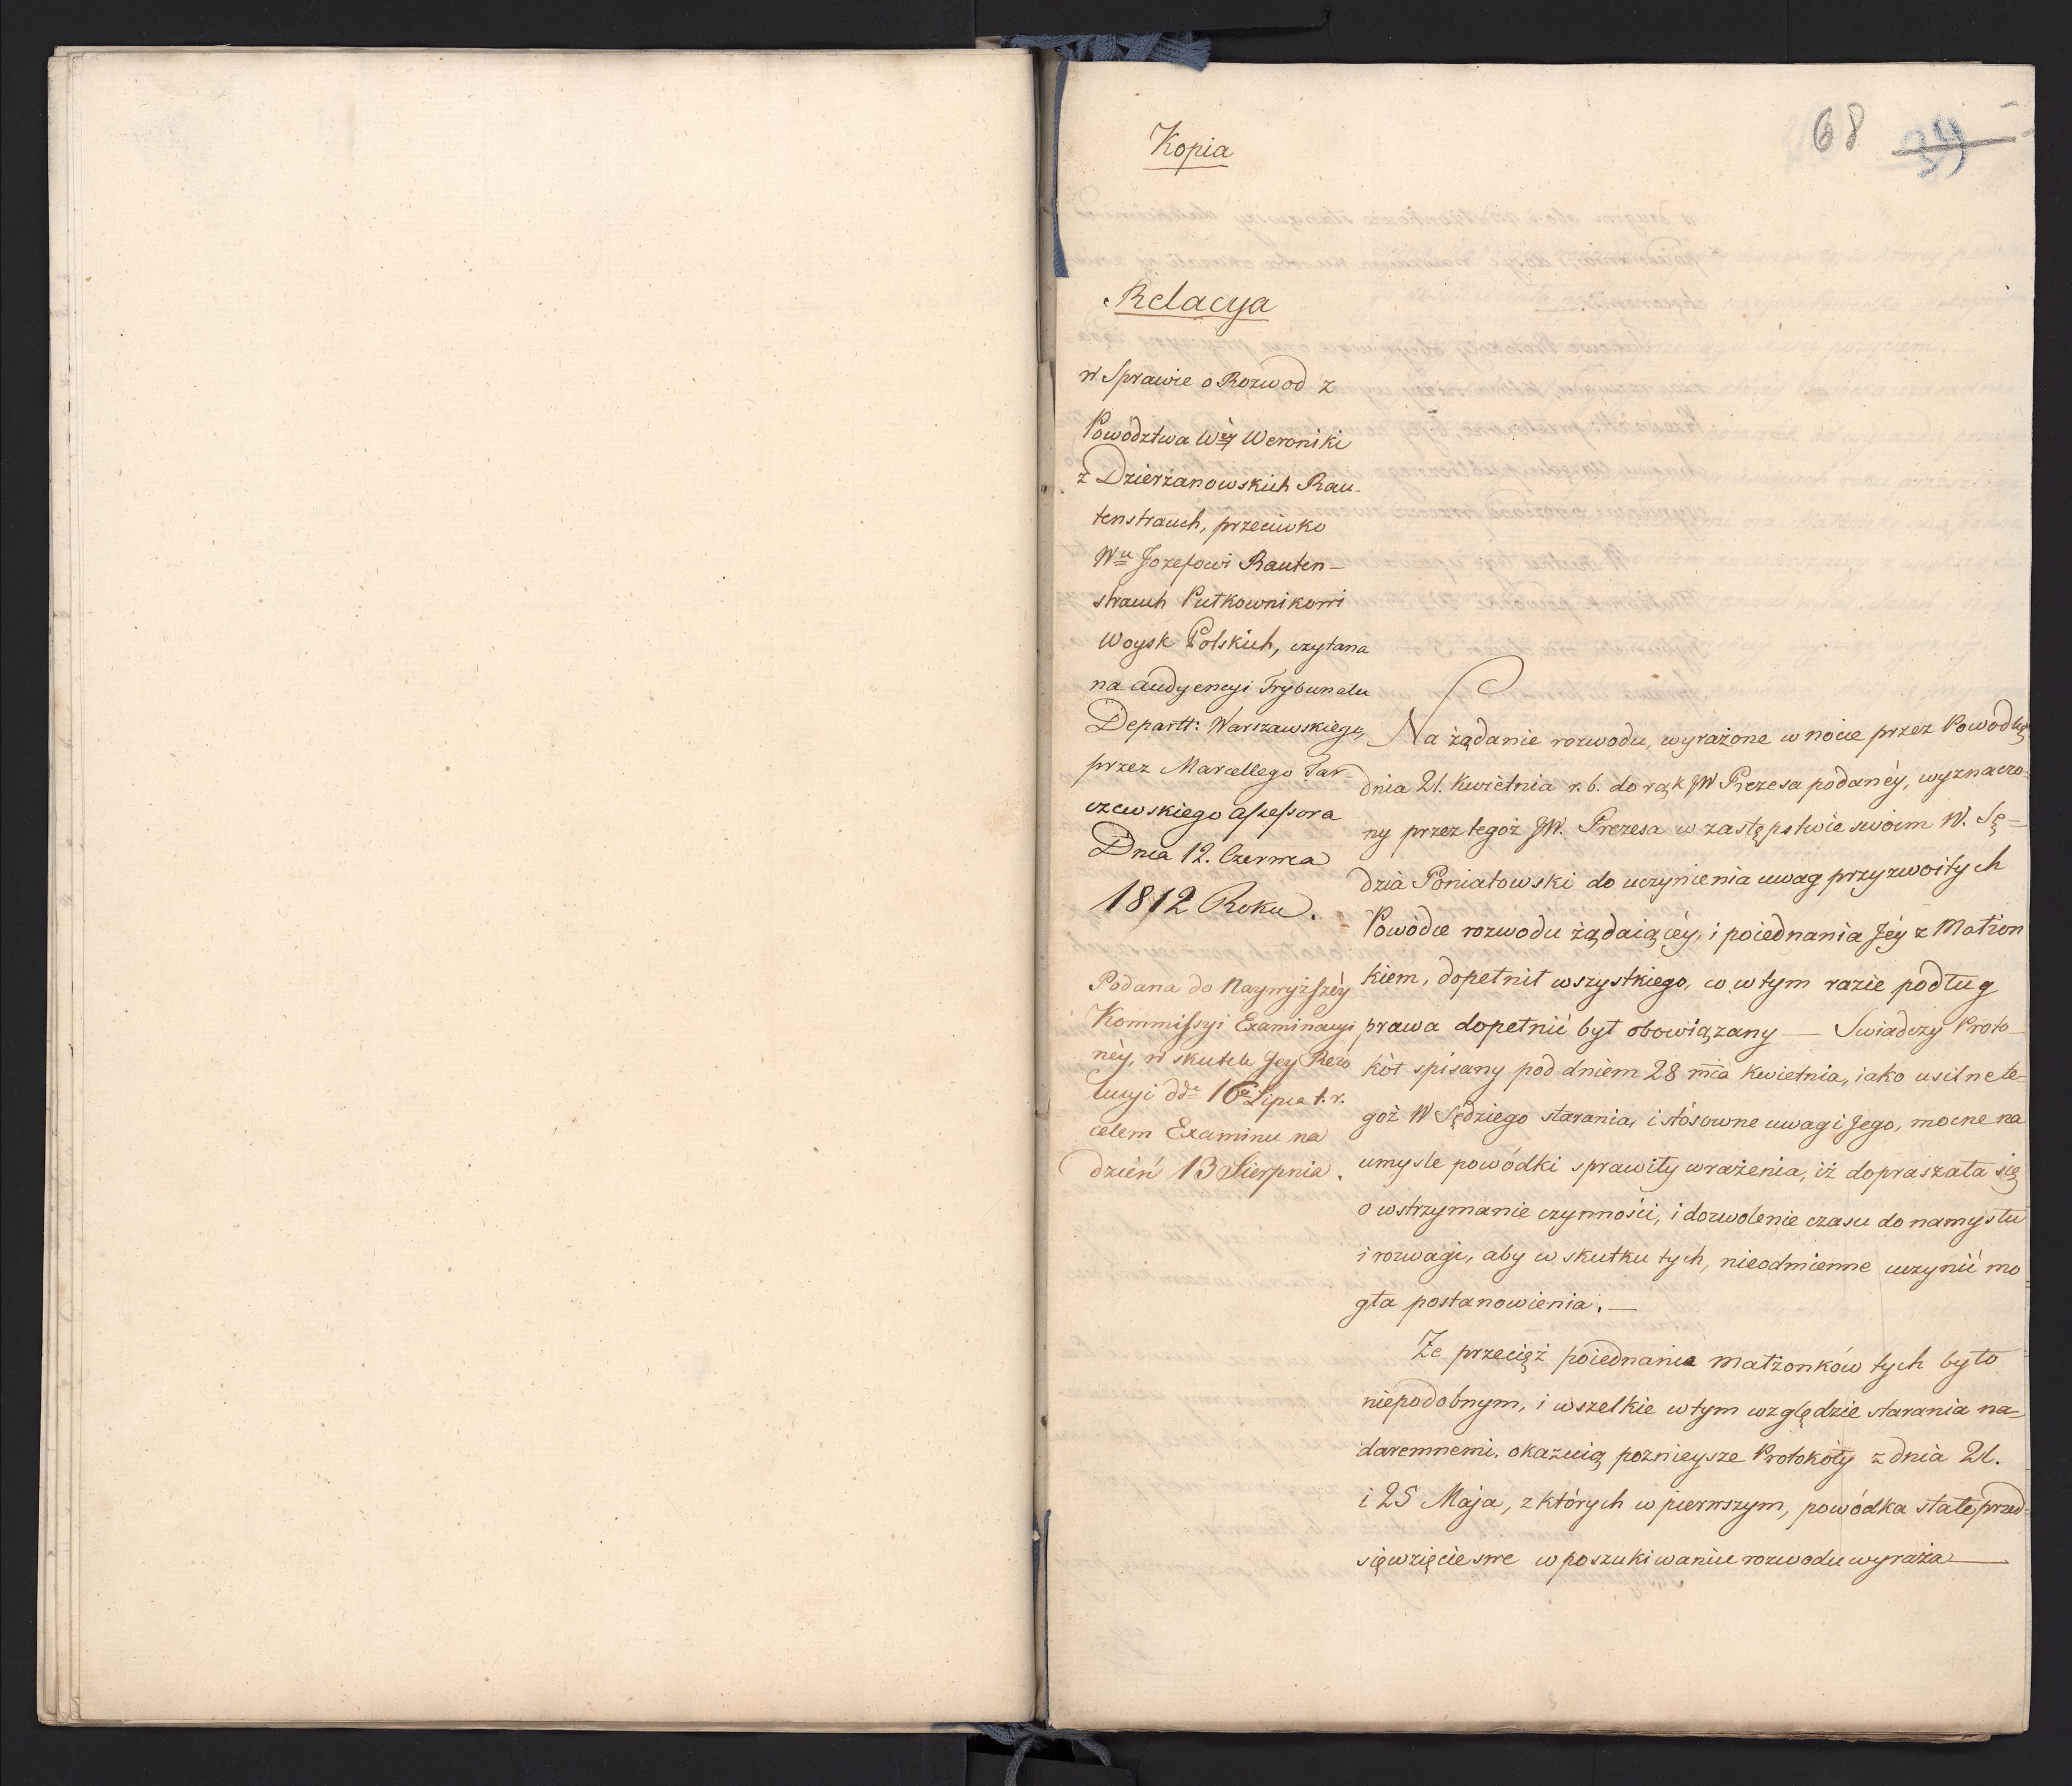 Kopia
68 34
Relacya
w Sprawie o Rozwod z
Powództwa Wéy Weroniki
z Dzierżanowskich Rau-
tenstrauch, przeciwko
Wu Jozefowi Rauten-
strauch Pułkownikowi
Woysk Polskich, czytana
na audyencyi Trybunału
Departt: Warszawskiego,
przez Marcellego Tar-
czewskiego assessora
Dnia 12. Czerwca
1812 Roku.
Podana do Naywyższéy
Kommissyi Examinacyi
néy, w skutek Jey Rezo
lucyi dde 16 Lipca t. r.
celem Examinu na
dzień 13 Sierpnia.
Na żądanie rozwodu, wyrażone w nocie przez Powodkę
dnia 21. Kwietnia r. b. do rąk JW Prezesa podanéy, wyznaczo-
ny przez tegoż JW. Prezesa w zastępstwie swoim W. Sę-
dzia Poniatowski do uczynienia uwag przyzwoitych
Powódce rozwodu żądaiącéy, i poiednania Jéy z Małżon
kiem, dopełnił wszystkiego, co w tym razie podług
prawa dopełnić był obowiązany — Swiadczy Proto-
kół spisany pod dniem 28 mca Kwietnia, iako usilne te-
goż W Sędziego starania, i stósowne uwagi Jego, mocne na
umyśle powódki sprawiły wrażenia, iż dopraszała się
o wstrzymanie czynności, i dozwolenie czasu do namysłu
i rozwagi, aby w skutku tych, nieodmienne uczynić mo
gła postanowienia. —
Ze przecięż poiednania małżonków tych było
niepodobnym, i wszelkie w tym względzie starania na-
daremnemi. okazuią poznieysze Protokoły z dnia 21.
i 25 Maja, z których w pierwszym, powódka stałe przed-
sięwzięcie swe w poszukiwaniu rozwodu wyraża —